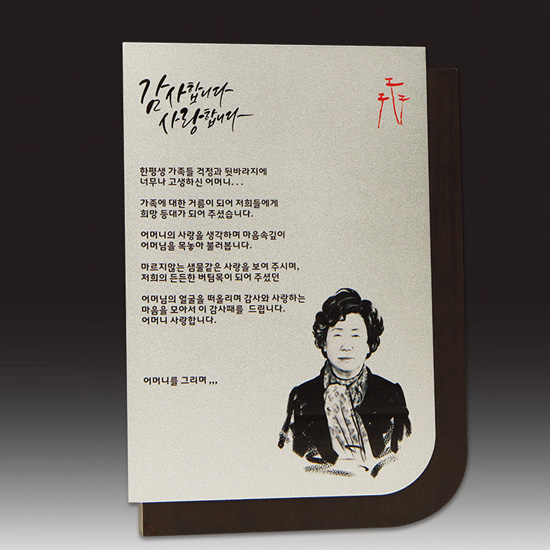 감사합니다
사랑합니다
한평생 가족들 걱정과 뒷바라지에
너무나 고생하신 어머니...
가족에 대한 거름이 되어 저희들에게
희망 등대가 되어 주셨습니다.
어머니의 사랑을 생각하며 마음속깊이
어머님을 목놓아 불러봅니다.
마르지않는 샘물같은 사랑을 보여 주시며,
저희의 든든한 버팀목이 되어 주셨던
어머님의 얼굴을 떠올리며 감사와 사랑하는
마음을 모아서 이 감사패를 드립니다.
어머니 사랑합니다.
어머니를 그리며 ,,,